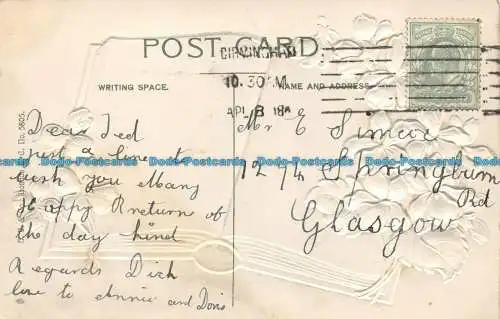 POST CARD.
BIRMINGHAM
10.30 M
WRITING SPACE.
NAME AND ADDRESS
No. 5605.
Dear Ted
Just a line to
wish you Many
Happy Return of
the day kind
Regards Dick
love to Annie and Doris
Mr E Simcox
1274 Springburn
Rd
Glasgow
Dodo-Postcards Dodo-Postcards Dodo-Postcards Dodo-Postcards